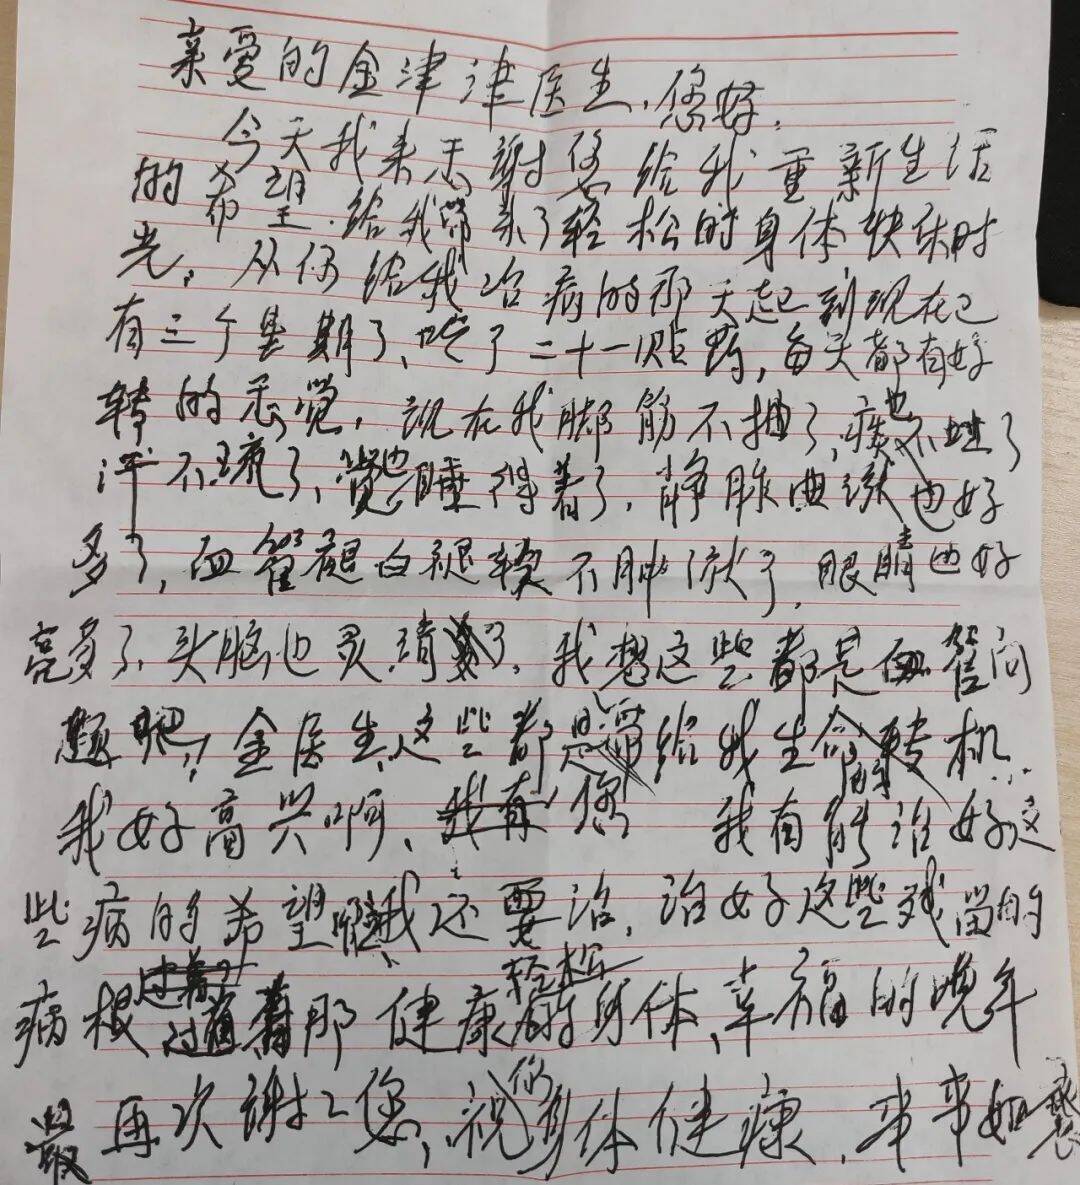 亲爱的金津津医生，您好，
今天我来感谢您给我重新生活
的希望，给我带来了轻松的身体快乐时
光，从你给我治病的那天起到现在已
有三个星期了，吃了二十一贴药，每天都有好
转的感觉，现在我脚筋不抽了，痰也不吐了
汗不流了，觉也睡得着了，静脉曲张也好
多了，血管腿也不肿胀了，眼睛也好
亮多了，头脑也灵清了，我想这些都是血管问
题吧！金医生，这些都是您带给我生命的转机
我好高兴啊，您 我有能治好这
些病的希望，我还要治，治好这些残留的
病根过着那健康轻松的身体，幸福的晚年
最再次谢谢您，祝你身体健康，事事如意